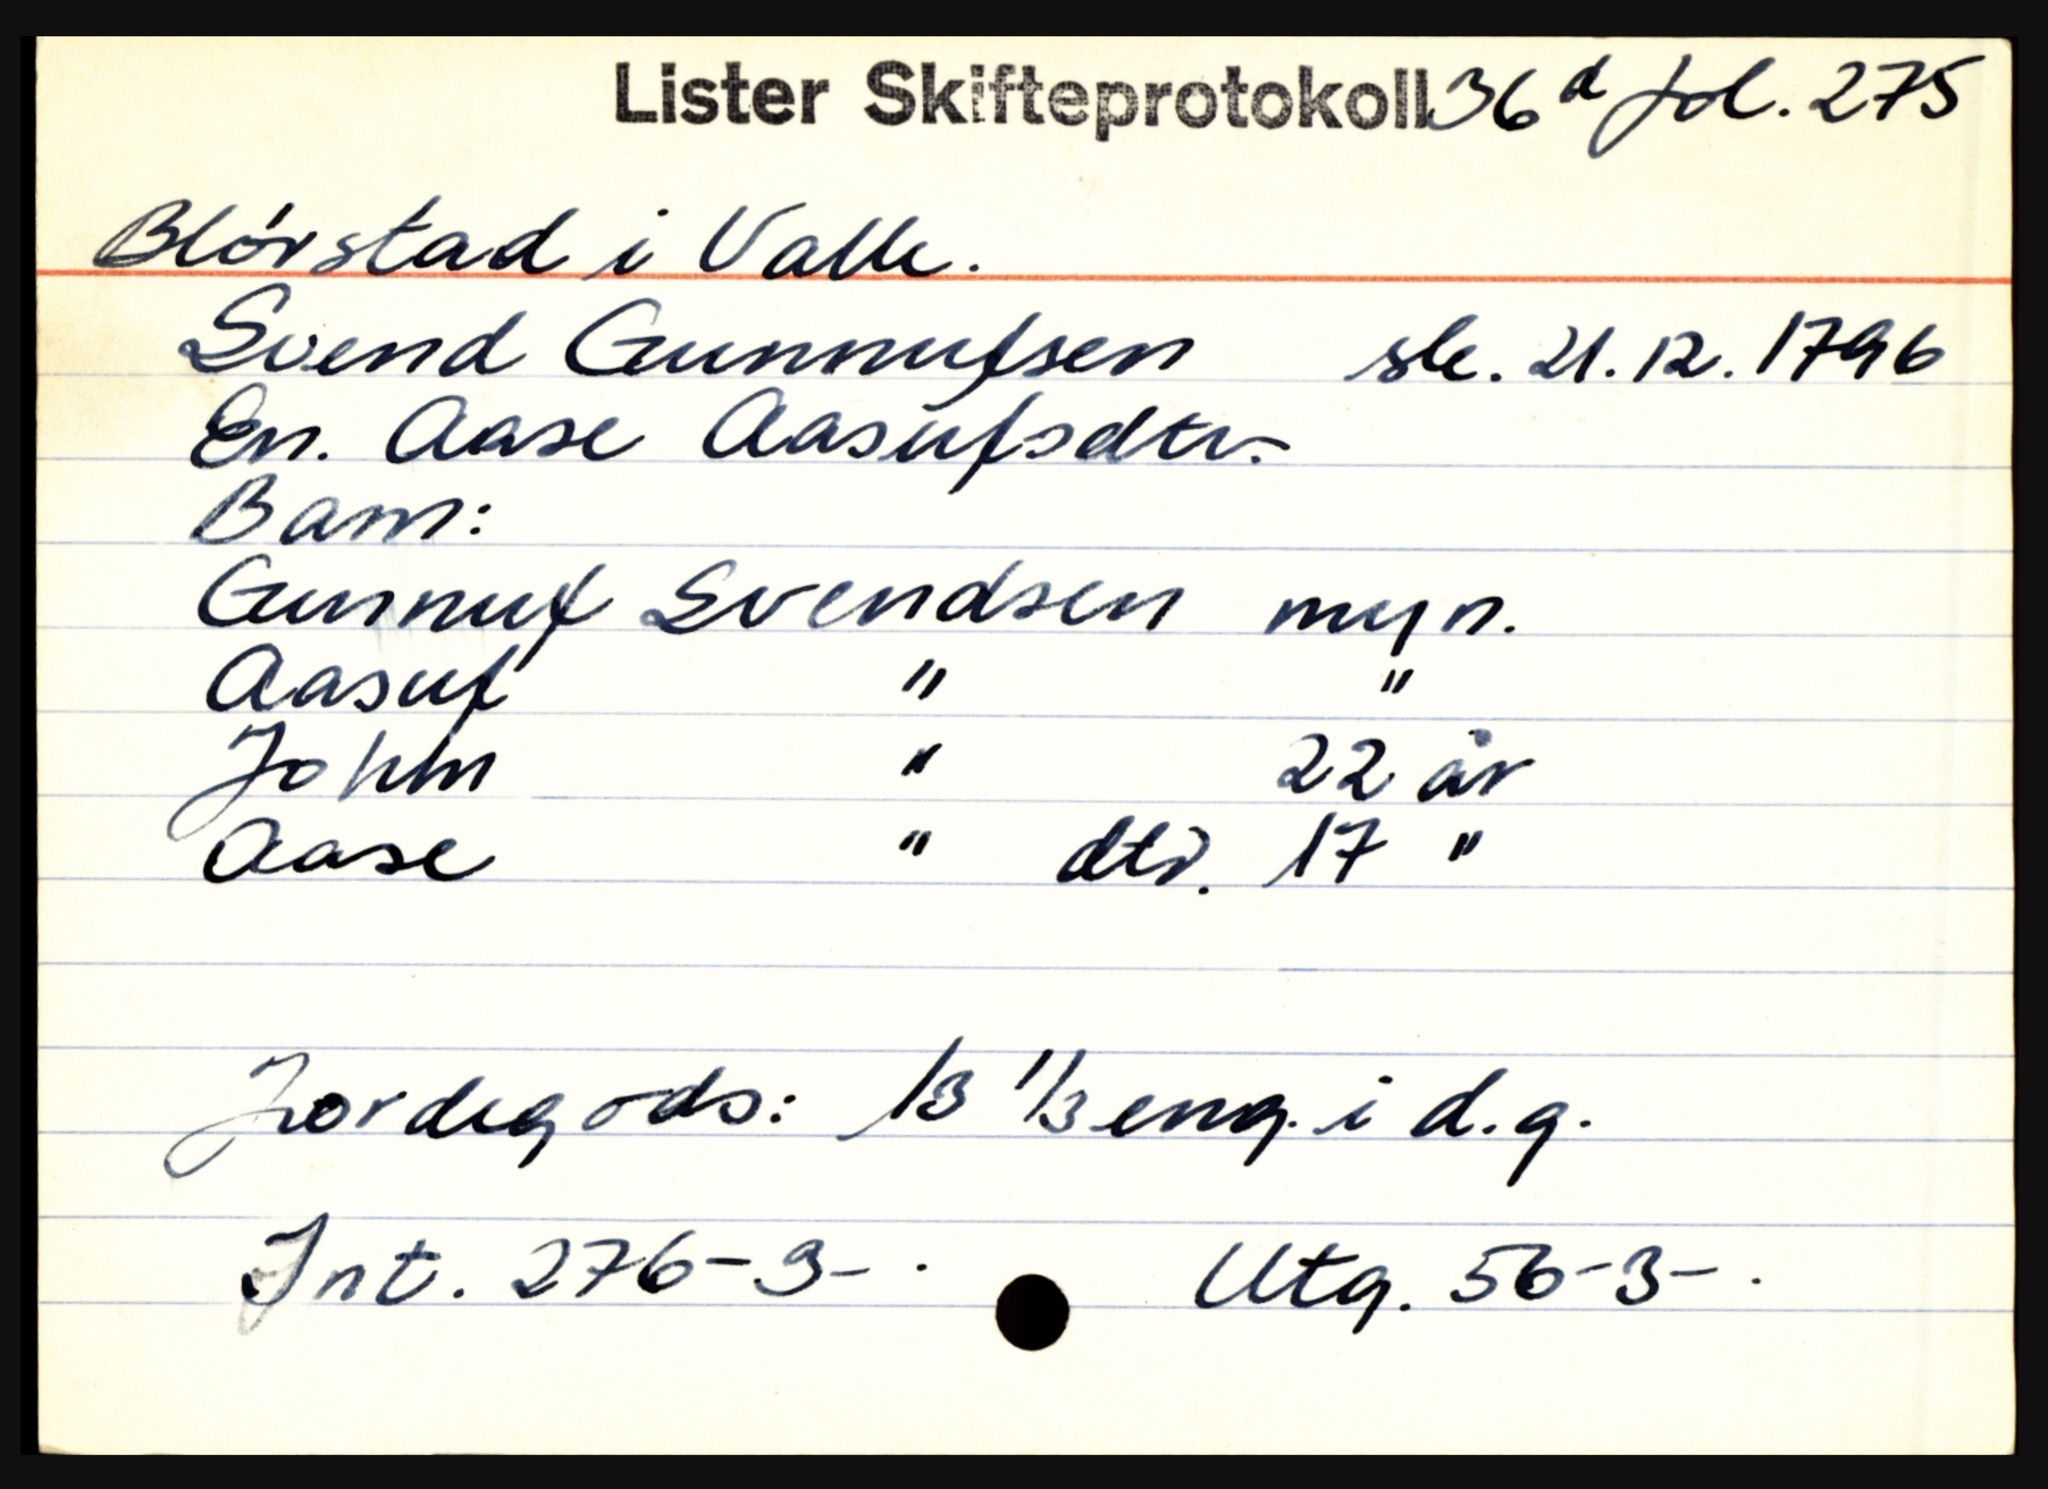 Lister Skifteprotokoll 36 d fol. 275
Blørstad i Valle.
Svend Gunnufsen ske. 21.12.1796
En. Aase Aasufsdtr.
Barn:
Gunnuf Svendsen myn.
Aasuf " "
John " 22 år
Aase " dtr. 17 "
Jordegods: 13 1/3 eng. i d.g.
Int. 276-3-. Utg. 56-3-.